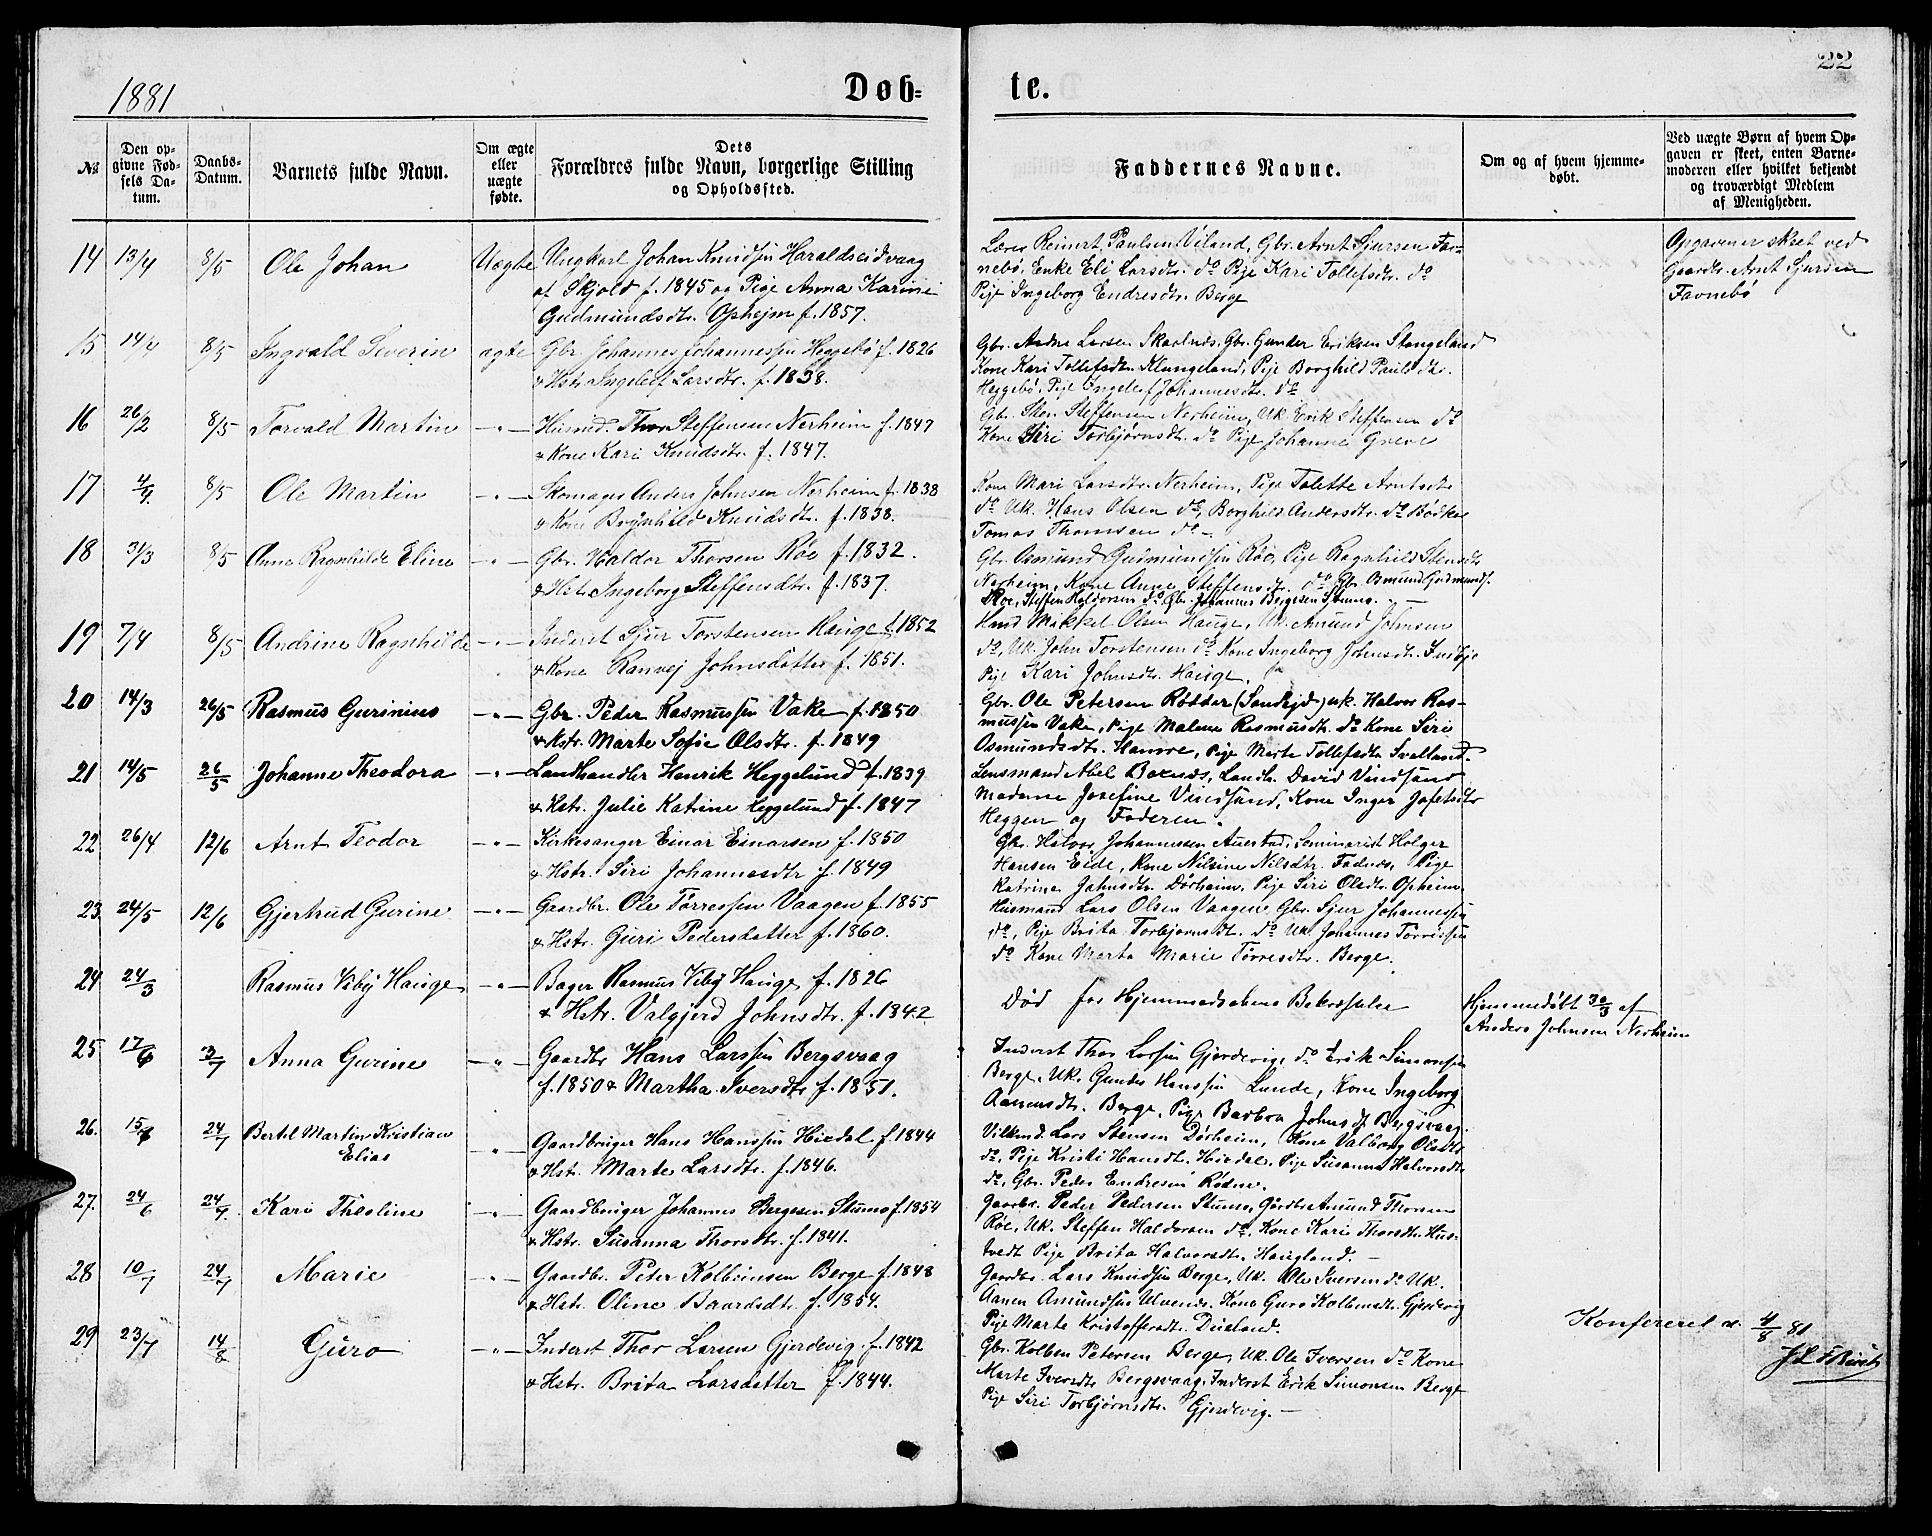 22
1881
Døb-
te.
No.
Den op-
givne Fød-
sels Da-
tum.
Daabs-
Datum.
Barnets fulde Navn.
Om ægte
eller
uægte
fødte.
Dets
Forældres fulde Navn, borgerlige Stilling
og Opholdssted.
Faddernes Navne.
Om og af hvem hjemme-
døbt.
Ved uægte Børn af hvem Op-
gaven er skeet, enten Barne-
moderen eller hvilket bekjendt
og troværdigt Medlem
af Menigheden.
14 13/4 8/5 Ole Johan Uægte Ungkarl Johan Knudsen Haraldseidvaag
af Skjold f. 1845 og Pige Anna Karine
Gudmundsdtr. Ophejm f. 1857.
Lærer Reinert Paulsen Viland, Gbr. Arnt Sjursen Fav-
nebø, Enke Eli Larsdtr. do Pige Kari Tollefsdtr. do
Pige Ingeborg Endresdtr. Berge
Opgaven er skeet ved
Gaardbr. Arnt Sjursen
Favnebø
15 14/4 8/5 Ingvald Severin ægte Gbr. Johannes Johannessen Heggebø f. 1826
& Hstr. Ingeleif Larsdtr. f. 1838.
Gbr. Andre Larsen Skaalnes, Gbr. Gunder Eriksen Stangeland
Kone Kari Tollefsdtr. Klungeland, Pige Borghild Paulsdtr.
Heggebø, Pige Ingeleif Johannesdtr. do
16 26/2 8/5 Torvald Martin -„- Husmd. Thor Steffensen Nerheim f. 1847
& Kone Kari Knudsdtr. f. 1847.
Gbr. Sten Steffensen Nerheim, Uk. Erik Steffensen do
Kone Siri Torbjørnsdtr. do Pige Johanne Greve
17 4/4 8/5 Ole Martin -„- Skomager Anders Johnsen Nerheim f. 1838
& Kone Brynhild Knudsdtr. f. 1838.
Kone Mari Larsdtr. Nerheim, Pige Tolette Arntsdtr.
do Uk. Hans Olsen do, Borghild Andersdtr. do Bødker
Tomas Thomsen do -
18 31/3 8/5 Anne Ragnhilde Eline -„- Gbr. Haldor Thorsen Røe f. 1832.
& Hstr. Ingeborg Steffensdtr. f. 1837.
Gbr. Osmund Gudmundsen Røe, Pige Ragnhild Stensdtr.
Nerheim, Kone Anne Steffensdtr. do Gbr. Osmund Gudmunds.
Røe, Steffen Haldorsen do Gbr. Johannes Bergesen Stumo.
19 7/4 8/5 Andrine Ragnhilde -„- Inderst Sjur Torstensen Hauge f. 1852
& Kone Ranvej Johnsdatter f. 1851.
Husmd Mikkel Olsen Hauge, Uk. Amund Johnsen
do, Uk. John Torstensen do Kone Ingeborg Johnsdtr.
Pige Kari Johnsdtr. Hauge.
20 14/3 26/5 Rasmus Gurinius -„- Gbr. Peder Rasmussen Vake f. 1850
& Hstr. Marte Sofie Olsdtr. f. 1849
Gbr. Ole Petersen Rødder (Sandejd) uk. Halvor Ras-
mussen Vake, Pige Malene Rasmusdtr. do Kone Siri
Osmundsdtr. Hamre, Pige Marta Tollefsdtr. Svalland.
21 14/5 26/5 Johanne Theodora -„- Landhandler Henrik Heggelund f. 1839
& Hstr. Julie Katrine Heggelund f. 1847
Lensmand Abel Boxnæs, Landh. David Vindsand
Madame Josefine Vindsand, Kone Inger Jafetsdtr
Heggen og Faderen.
22 26/4 12/6 Arnt Teodor -„- Kirkesanger Einar Einarsen f. 1850
& Hstr. Siri Johannesdtr f. 1849
Gbr. Halvor Johannessen Austad, Seminarist Holger
Hansen Eide, Kone Nilsine Nilsdtr. Fadnæs, Pige
Katrine Jahnsdtr. Dørheim, Pige Siri Olsdtr. Opheim.
23 24/5 12/6 Gjertrud Gurine -„- Gaardbr. Ole Tørressen Vaagen f. 1855
& Hstr. Guri Pedersdatter f. 1860.
Husmand Lars Olsen Vaagen, Gbr. Sjur Johannessen
do, Pige Brita Torbjørnsdtr. do Uk. Johannes Tørressen
do Kone Marta Marie Tørresdtr. Berge.
24 24/3 Rasmus Viby Hauge -„- Bager Rasmus Viby Hauge f. 1826
& Hstr. Valgjerd Johnsdtr. f. 1842
Død før Hjemmedaabens Bekræftelse
Hjemmedøbt 30/3 af
Anders Johnsen Nerheim
25 17/6 3/7 Anna Gurine -„- Gaardbr Hans Larssen Bergsvaag
f. 1850 & Martha Iversdtr f. 1851.
Inderst Thor Larsen Gjerdevig, do Erik Simonsen
Berge, Uk. Gunder Hanssen Lunde, Kone Ingeborg
Aanensdtr. Berge, Pige Barbra Johnsdtr Bergsvaag.
26. 15/6 24/7 Bertel Martin Kristian
Elias -„- Gaardbruger Hans Hanssen Hiedal f. 1844
& Hstr. Marte Larsdtr. f. 1846.
Vilkmd. Lars Stensen Dørheim, Kone Valborg Olsdtr.
do, Pige Kristi Hansdtr. Hiedal, Pige Susanna Halvorsdtr.
do, Gbr. Peder Endresen Rødne.
27. 24/6 24/7 Kari Theoline -„- Gaardbruger Johannes Bergesen Stumo f. 1854
& Hstr. Susanna Thorsdtr. f. 1841.
Gaardbr. Peder Pedersen Stumo, Gårdbr. Amund Thorsen
Røe, Uk. Steffen Haldorsen do, Kone Kari Thorsdtr. Hus-
tvedt Pige Brita Halvorsdtr. Haugland. -
28 10/7 24/7 Marie -„- Gaardbr. Peter Kolbeinsen Berge f. 1848
& Hstr. Oline Baardsdtr. f. 1854.
Gardbr. Lars Knudsen Berge, Uk. Ole Iversen do Uk.
Aanen Amundsen Ulvenes. Kone Guro Kolbensdtr. Gjerdevig
Pige Marta Kristoffersdtr. Dueland.
29 23/7 14/8 Guro -„- Inderst Thor Larsen Gjerdevig f. 1842
& Hstr. Brita Larsdatter f. 1844.
Gbr. Kolben Petersen Berge, Uk. Ole Iversen do Kone
Marte Iversdtr Bergsvaag, Inderst Erik Simonsen Berge
Pige Siri Torbjørnsdtr. Gjerdevig. -
Konfereret d. 4/8 81